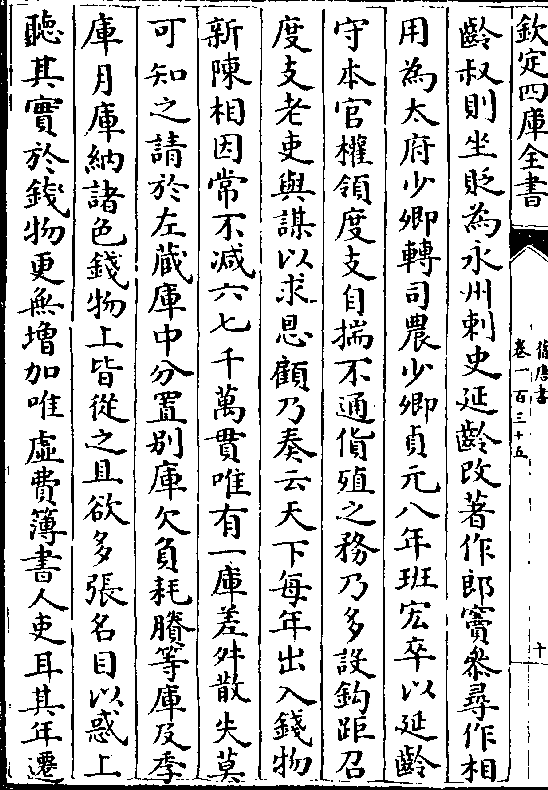 欽定四庫全書
舊唐書
卷一百三十五
十
齡叔則坐貶為永州刺史延齡改著作郎竇參尋作相
用為太府少卿轉司農少卿貞元八年班宏卒以延齡
守本官權領度支自揣不通貨殖之務乃多設鈎距召
度支老吏與謀以求恩顧乃奏云天下每年出入錢物
新陳相因常不减六七千萬貫唯有一庫差舛散失莫
可知之請於左藏庫中分置别庫欠負耗賸等庫及季
庫月庫納諸色錢物上皆從之且欲多張名目以惑上
聽其實於錢物更無增加唯虚費簿書人吏耳其年遷